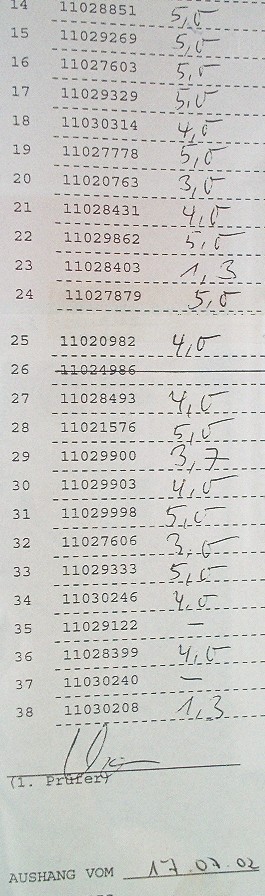 14 11028851 5,0
15 11029269 5,0
16 11027603 5,0
17 11029329 5,0
18 11030314 4,0
19 11027778 5,0
20 11020763 3,0
21 11028431 4,0
22 11029862 5,0
23 11028403 1,3
24 11027879 5,0
25 11020982 4,0
26 11024986
27 11028493 4,0
28 11021576 5,0
29 11029900 3,7
30 11029903 4,0
31 11029998 5,0
32 11027606 3,0
33 11029333 5,0
34 11030246 4,0
35 11029122 —
36 11028399 4,0
37 11030240 —
38 11030208 1,3
(1. Prüfer)
AUSHANG VOM 17.07.02